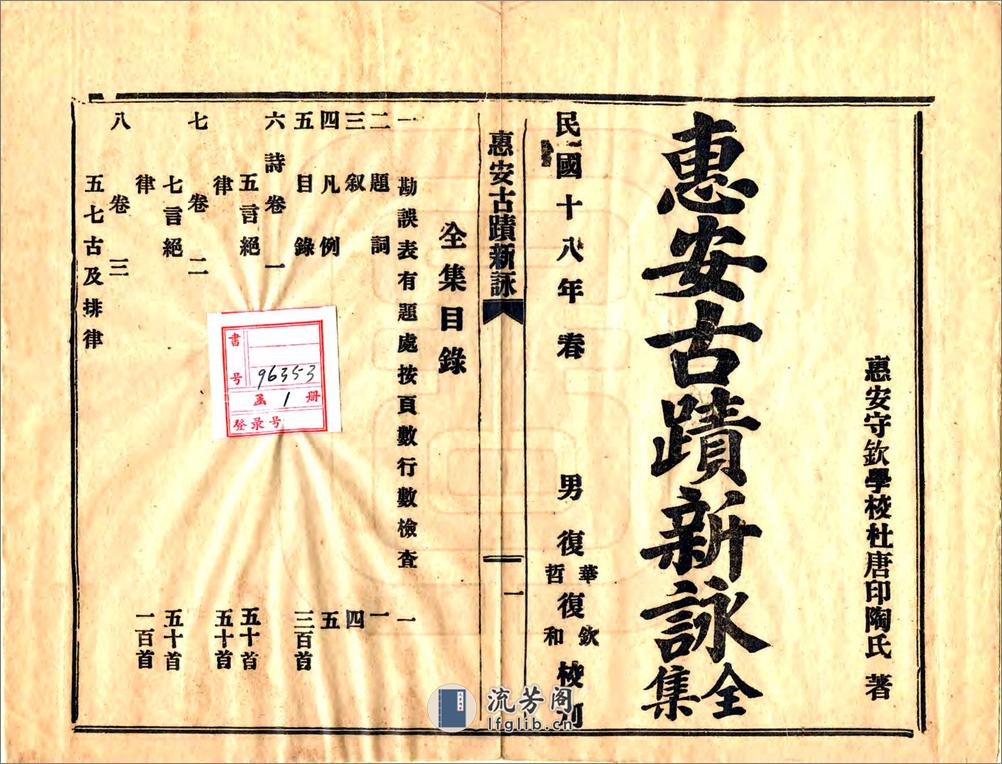 惠安守欽學校杜唐印陶氏 著
惠安古蹟新詠全集
民國十八年春 男復華哲復欽和校刊
惠安古蹟新詠 一
全集目錄
一 勘誤表有題處按頁數行數檢查 一
二 題詞 一
三 叙 四
四 凡例 五
五 目錄 三百首
六 詩卷一
五言絕 五十首
律 五十首
七 卷二
七言絕 五十首
律 一百首
八 卷三
五七古及排律
書号 96353
函 1 册
登录号
流芳阁
lfglib.cn